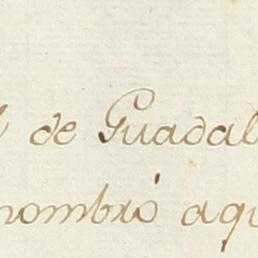 de Guadal
nombró aqu